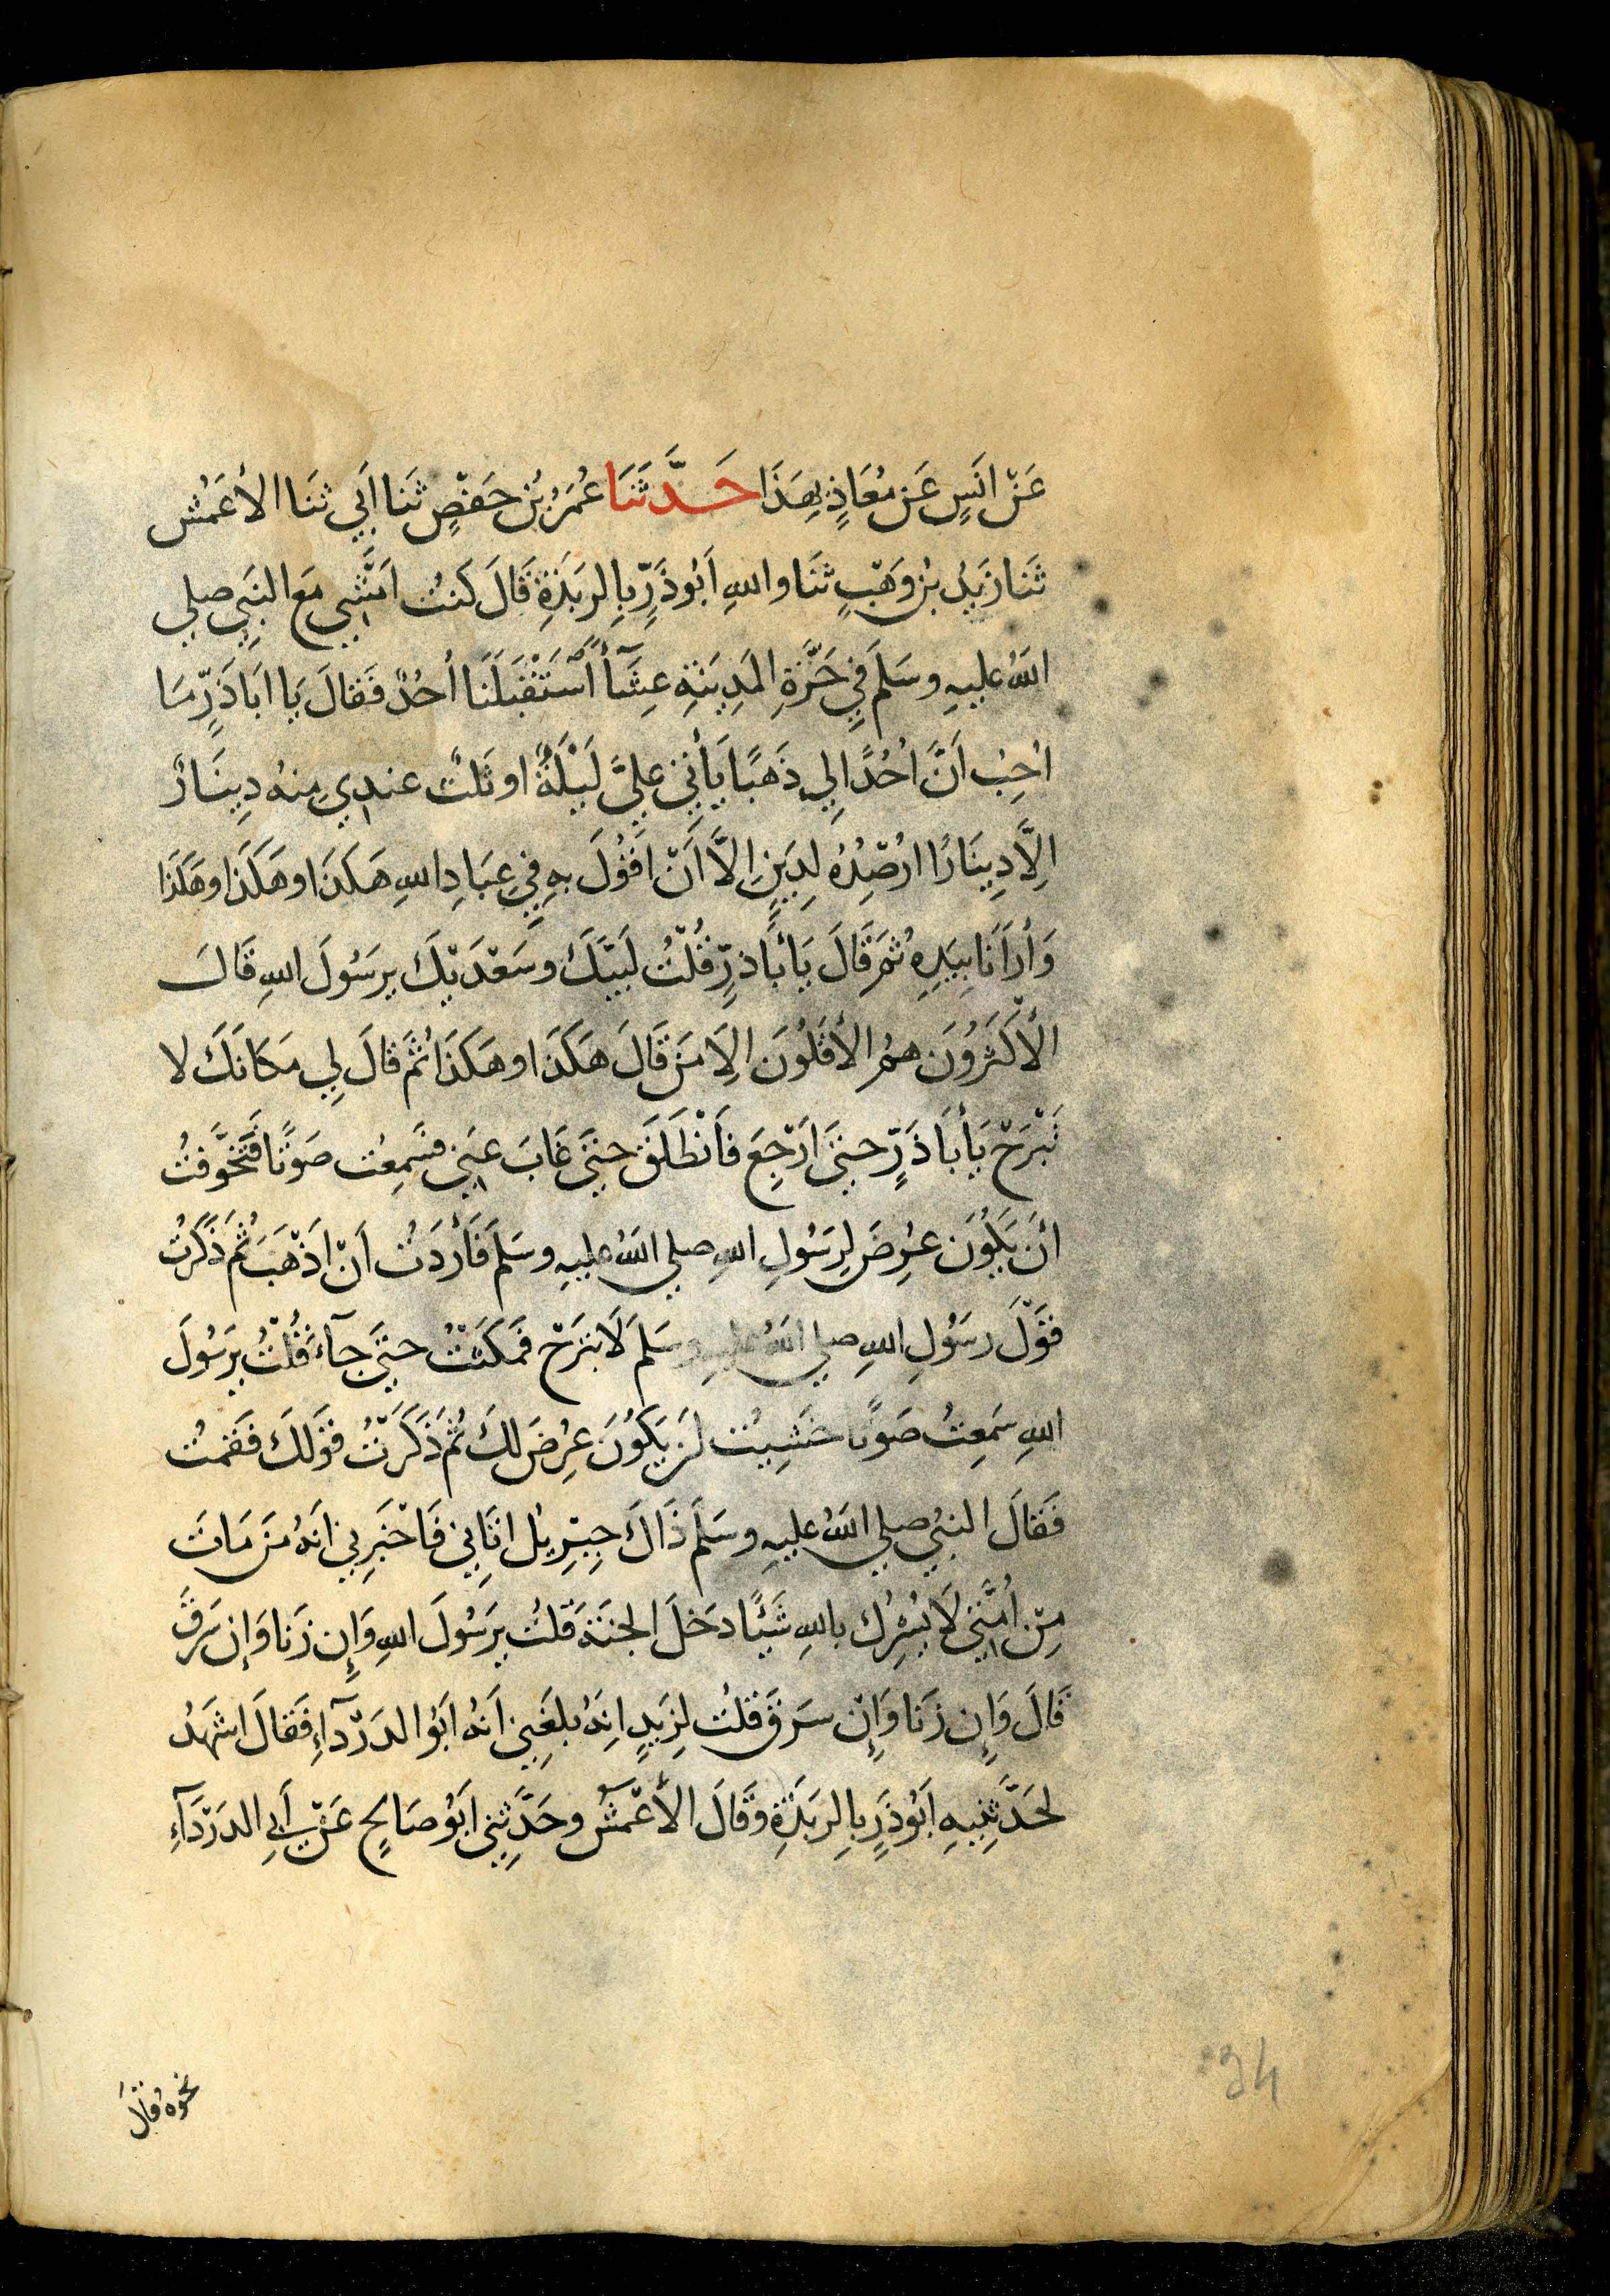 عَنْ اَنَسٍ عَن مُعَاذٍ بِهَذَا حَدَّثَنَا عُمَرُ بْنُ حَفْصٍ ثَنَا اَبِي ثنَا الأَعْمَش
ثَنَا زَيْدُ بْنُ وَهْبٍ ثنَا واللهِ اَبُو ذَرٍّ بِالرَبَذَةِ قَالَ كنتُ اَمْشِي مَعَ النَبِيِ صلي
اللهُ عليهِ وسَلَمَ فِي حَرَّةِ المَدِينَةِ عِشَآءً اَسْتَقْبَلَنَا اُحُدٌ فَقالَ يَا اَبَا ذَرٍّ مَا
اُحِبُ اَنَّ اُحُدًا لِي ذَهَبًا يَأتِي عليَّ لَيْلَةٌ او ثَلثٌ عندِي مِنهُ دِينَارٌ
اِلَّا دِينَارًا ارْصِدُهُ لِدَينٍ اِلاَّ اَنْ اَقُولَ بهِ فِي عِبَادِ اللهِ هَكَذَا وهَكَذَا وهَكَذَا
وَأرَانَا بِيَدِهِ ثُمَ قَالَ يَأبَا ذرٍّ قُلْتُ لَبَيْكَ وسَعْدَيْكَ يرَسُولَ اللهِ قَالَ
الأَكْثَرُونَ همُ الأَقَلُونَ اِلاَ مَن قَالَ هَكَذَا وهَكَذَا ثُمَ قالَ لِي مَكَانَكَ لا
تَبْرَحْ يَأبَا ذَرٍّ حتيَ اَرْجِعَ فَانْطَلَقَ حتيَ غَابَ عنِي فسَمِعْت صَوْتًا فَتَخَوَّفتُ
أنَ يَكُونَ عرِضَ لِرَسُولِ اللهِ صلي اللهُ عليهِ وسَلمَ فَأرَدتُ اَنْ اَذْهَبَ ثُمَ ذكَرْتُ
قَوْلَ رسَوُلِ اللهِ صلي اللهُ عليهِ وسَلمَ لاَ تبْرَحْ فمَكَثْتُ حتيَ جآءَ قُلْتُ يرَسُولَ
اللهِ سَمِعتُ صَوتًا خَشِيتُ اَن يَكُونَ عرِضَ لكَ ثُمَ ذَكَرْتُ قَوْلكَ فَقمْتُ
فَقالَ النبيُ صلي اللهُ عليهِ وسَلَمَ ذَاكَ جِبْرِيلُ اتَانِي فَاخْبَرنِي انَهُ مَن مَاتَ
مِنْ اُمَّتِي لاَ يُشْرِكُ بِاللهِ شَيْئًا دخَلَ الجنَةَ قلتُ يرَسُولَ اللهِ وَإن زَنَا وَإن سَرَقَ
قَالَ وَإِن زَنَا وَإِنْ سَرَقَ قلتُ لِزَيدٍ اِنهُ بلغَنِي اَنهُ ابَوُ الدَرْدآءِ فَقالَ اشَهَدُ
لحَدَّثنِيهِ اَبُو ذَرٍ بِالرَبَذَةِ وقَالَ الأَعْمَشُ وحَدَّثِنِي ابَوُ صَالِحٍ عَنْ اَبي الدَرْدَآءِ
نحوَهُ وقَالَ
34